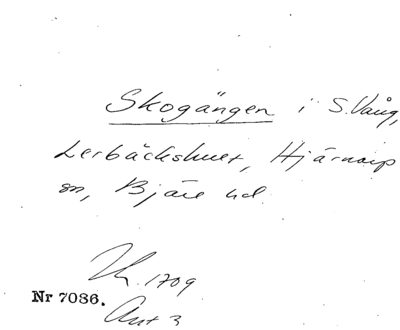 Skogängen i S. Vång,
Lerbäckshult, Hjärnarp
sn, Bjäre hd.
1709
Nr 7086.
Ant 3